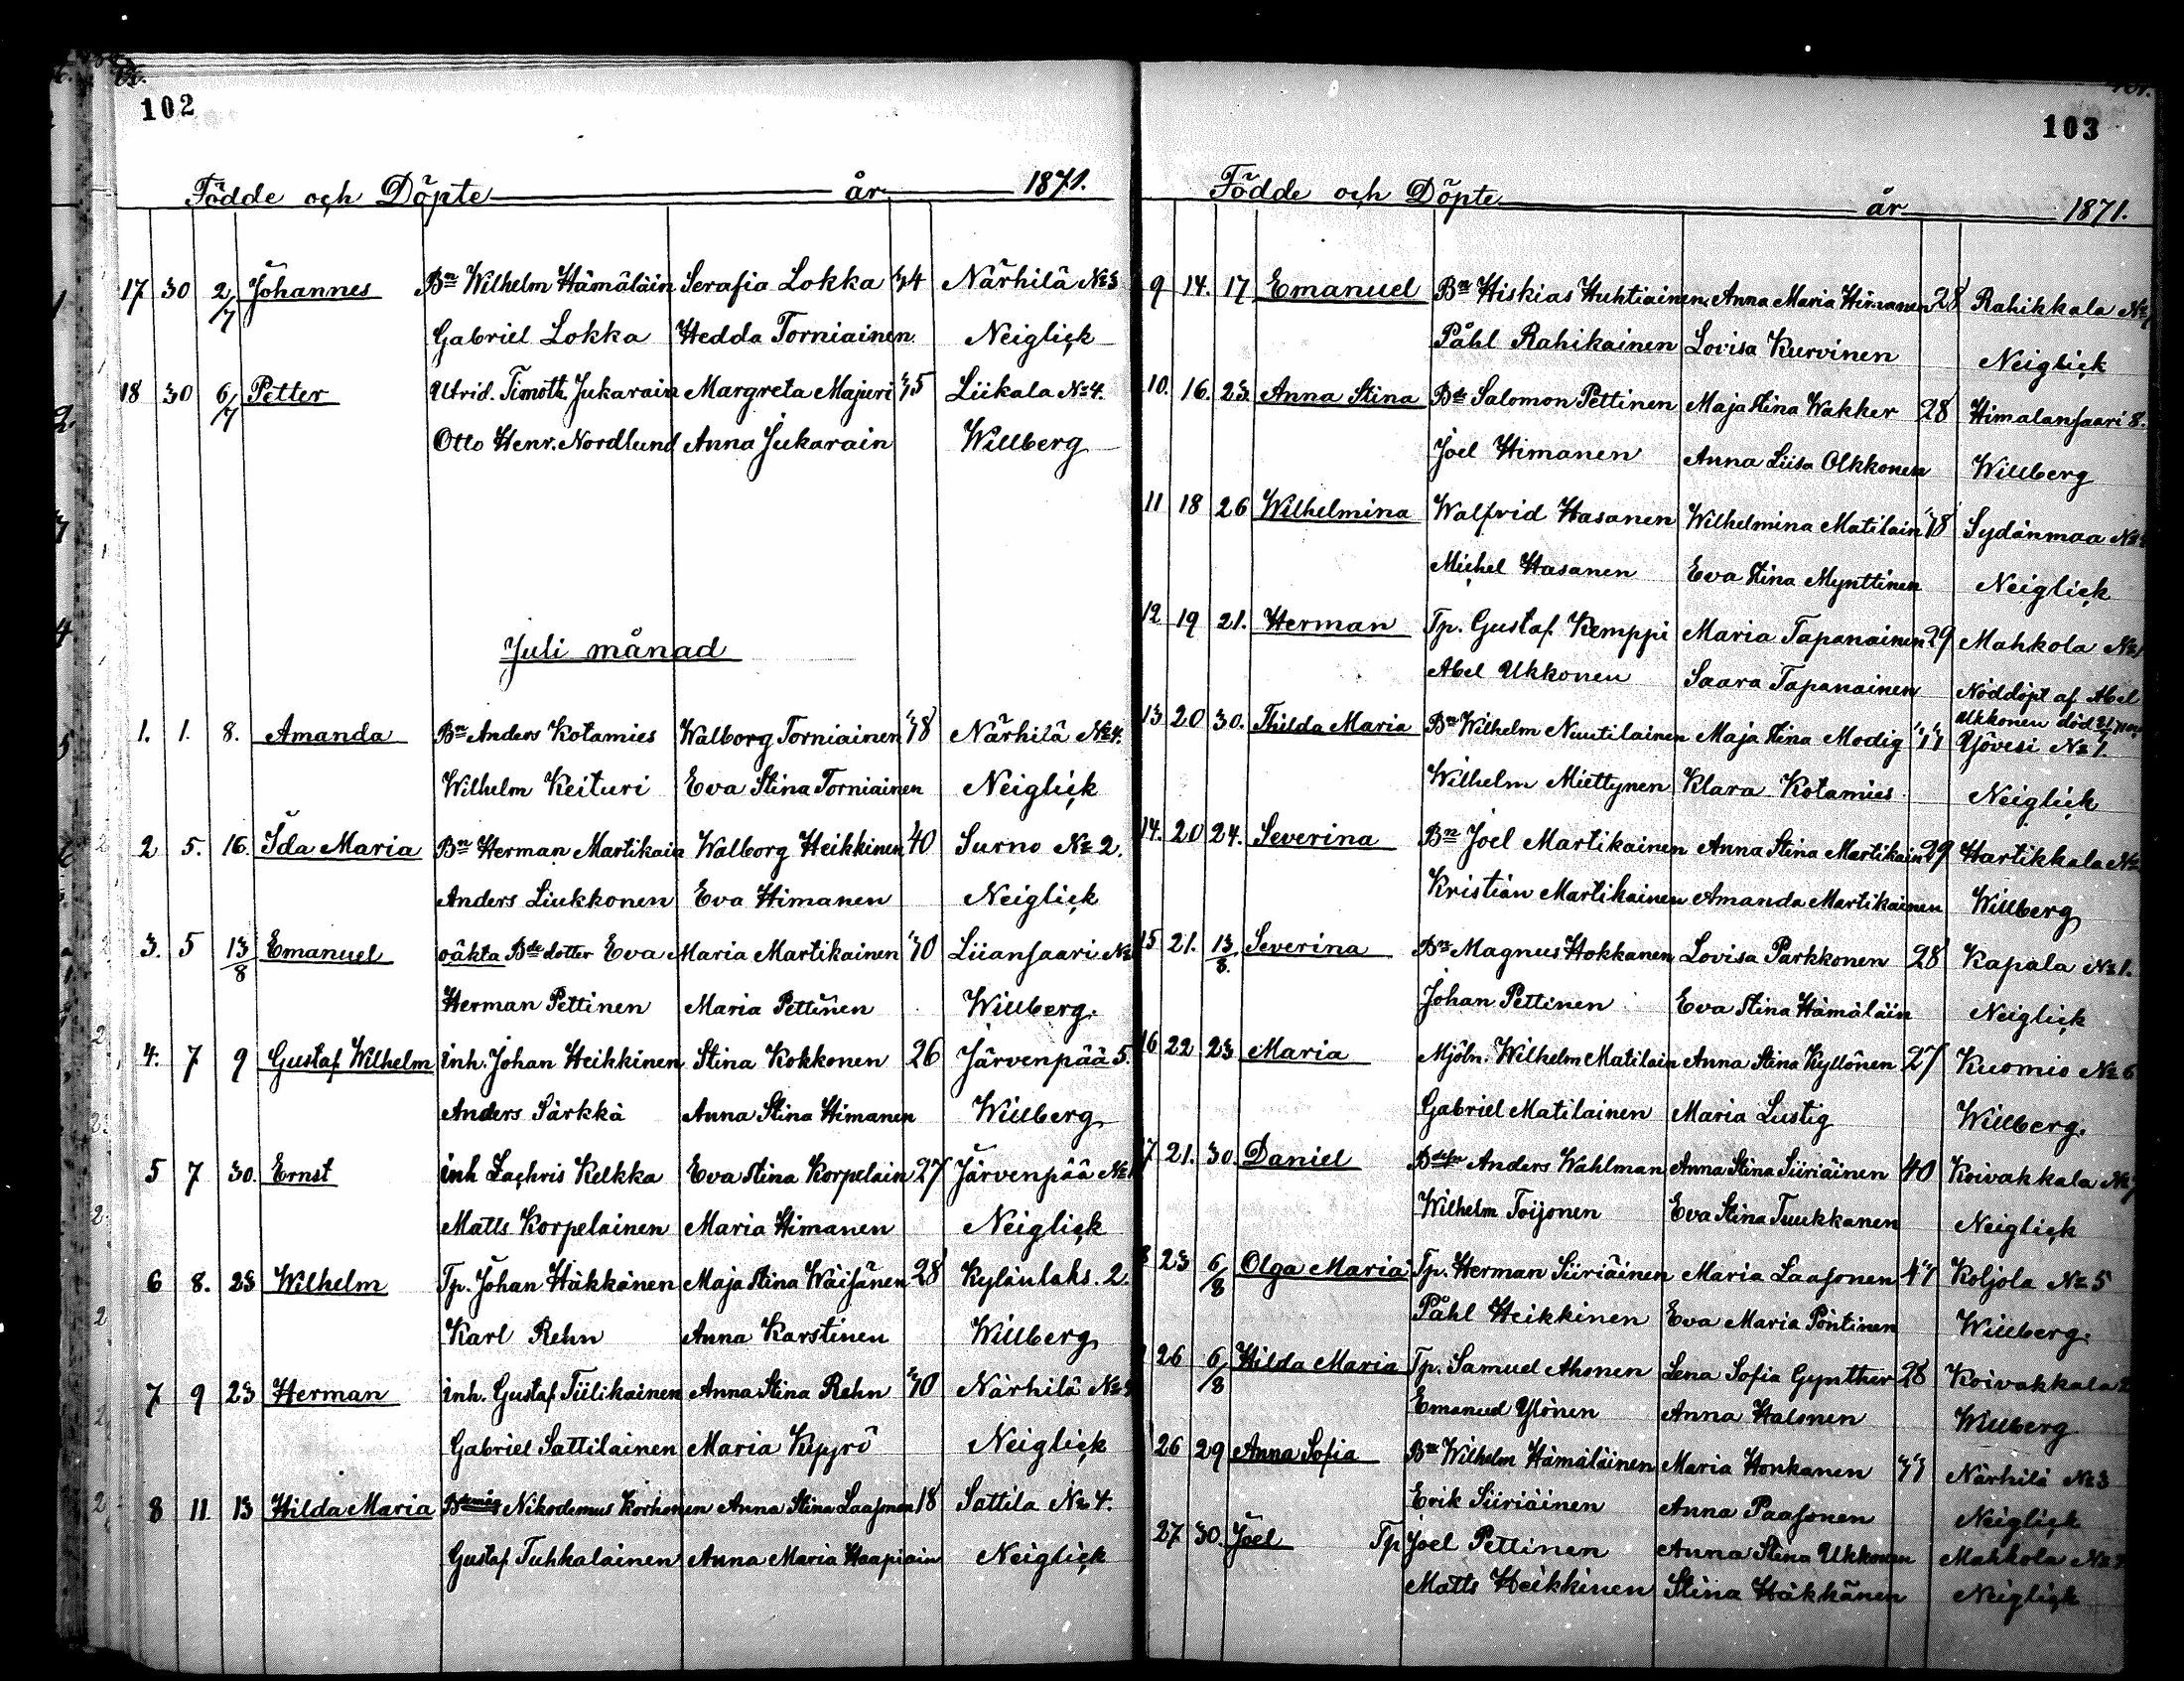 102
Födde och Döpte år 1871.
17 30 2/7 Johannes Bn Wilhelm Hämäläin Serafia Lokka 34 Närhilä No 3
Gabriel Lokka Hedda Torniainen Neiglick
18 30 6/7 Petter Utrid. Timoth. Jukarain Margreta Majuri 35 Liikala No 4.
Otto Henr. Nordlund Anna Jukarain Willberg
Juli månad
1. 1. 8. Amanda Bn Anders Kotamies Walborg Torniainen 38 Närhilä No 4.
Wilhelm Keituri Eva Stina Torniainen Neiglick
2 5. 16. Ida Maria Bn Herman Martikain Walborg Heikkinen 40 Surno No 2.
Anders Liukkonen Eva Himanen Neiglick
3. 5 13/8 Emanuel oäkta Bde dotter Eva Maria Martikainen 30 Liiansaari No
Herman Pettinen Maria Pettinen Willberg.
4. 7 9 Gustaf Wilhelm inh. Johan Heikkinen Stina Kokkonen 26 Järvenpää 5.
Anders Särkkä Anna Stina Himanen Willberg
5 7 30. Ernst inh Zachris Kelkka Eva Stina Korpelain 27 Järvenpää No
Matts Korpelainen Maria Himanen Neiglick
6 8. 23 Wilhelm Tp. Johan Häkkänen Maja Stina Wäisänen 28 Kylänlaks. 2.
Karl Rehn Anna Karstinen Willberg
7 9 23 Herman inh. Gustaf Tiilikainen Anna Stina Rehn 30 Närhilä No
Gabriel Sattilainen Maria Kepyrö Neiglick
8 11. 13 Hilda Maria Nikodemus Korhonen Anna Stina Laasonen 18 Sattila No 4.
Gustaf Tuhkalainen Anna Maria Haapiain Neiglick
103
Födde och Döpte år 1871.
9 14. 17 Emanuel Bn Hiskias Huhtiainen Anna Maria Himanen 28 Rahikkala No
Påhl Rahikainen Lovisa Kurvinen Neiglick
10. 16. 23. Anna Stina Bde Salomon Pettinen Maja Stina Wakker 28 Himalansaari 8.
Joel Himanen Anna Liisa Olkkonen Willberg
11 18 26 Wilhelmina Walfrid Hasanen Wilhelmina Matilain 18 Sydänmaa No
Michel Hasanen Eva Stina Mynttinen Neiglick
12 19 21. Herman Tp. Gustaf Kemppi Maria Tapanainen 29 Mahkola No
Abel Ukkonen Saara Tapanainen Nöddöpt af Abel
Ukkonen död
13 20 30. Thilda Maria Bn Wilhelm Nuutilainen Maja Stina Modig Yövesi No 7.
Wilhelm Miettynen Klara Kotamies Neiglick
14. 20 24. Severina Bn Joel Martikainen Anna Stina Martikain 29 Hartikkala No
Kristian Martikainen Amanda Martikainen Willberg
15 21. 13/8. Severina Bn Magnus Hokkanen Lovisa Parkkonen 28 Kapala No 1.
Johan Pettinen Eva Stina Hämäläin Neiglick
16 22 23 Maria Mjöln. Wilhelm Matilain Anna Stina Kyllönen 27 Kuomio No 6
Gabriel Matilainen Maria Lustig Willberg.
7 21. 30. Daniel Anders Wahlman Anna Stina Siiriäinen 40 Koivakkala No
Wilhelm Toijonen Eva Stina Tuukkanen Neiglick
8 23 6/8 Olga Maria Tp. Herman Siiriäinen Maria Laasonen Koljola No 5
Påhl Heikkinen Eva Maria Pöntinen Willberg.
26 6/8 Hilda Maria Tp. Samuel Ahonen Lena Sofia Gynther 28 Koivakkala 2
Emanuel Ylönen Anna Halonen Willberg
26 29 Anna Sofia Bn Wilhelm Hämäläinen Maria Honkanen Närhilä No 3
Erik Siiriäinen Anna Paasonen Neiglick
27 30. Joel Tp Joel Pettinen Anna Stina Ukkonen Mahkola No 2
Matts Heikkinen Stina Häkkänen Neiglick